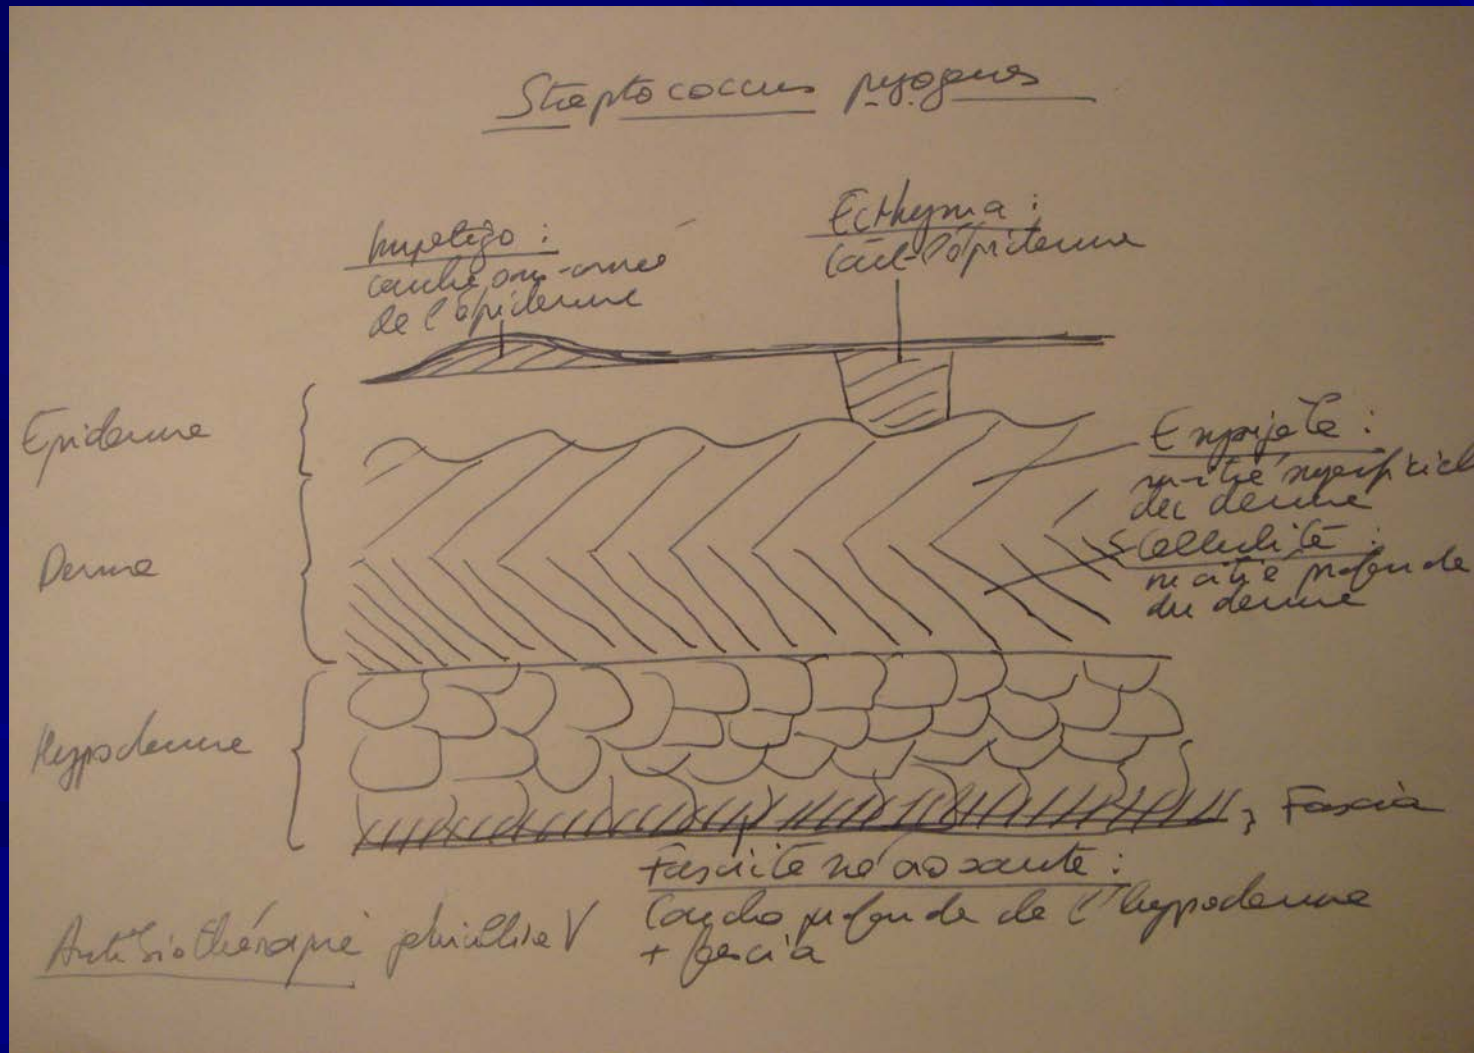 Streptococcus pyogenes
Impetigo :
couche sous-cornée
de l'épiderme
Ecthyma :
tout l'épiderme
Epiderme
Erysipèle :
moitié superficiel
du derme
Derme
Cellulite :
moitié profonde
du derme
Hypoderme
Fascia
Fasciite nécrosante :
Couche profonde de l'hypoderme
+ fascia
Antibiothérapie pénicilline V